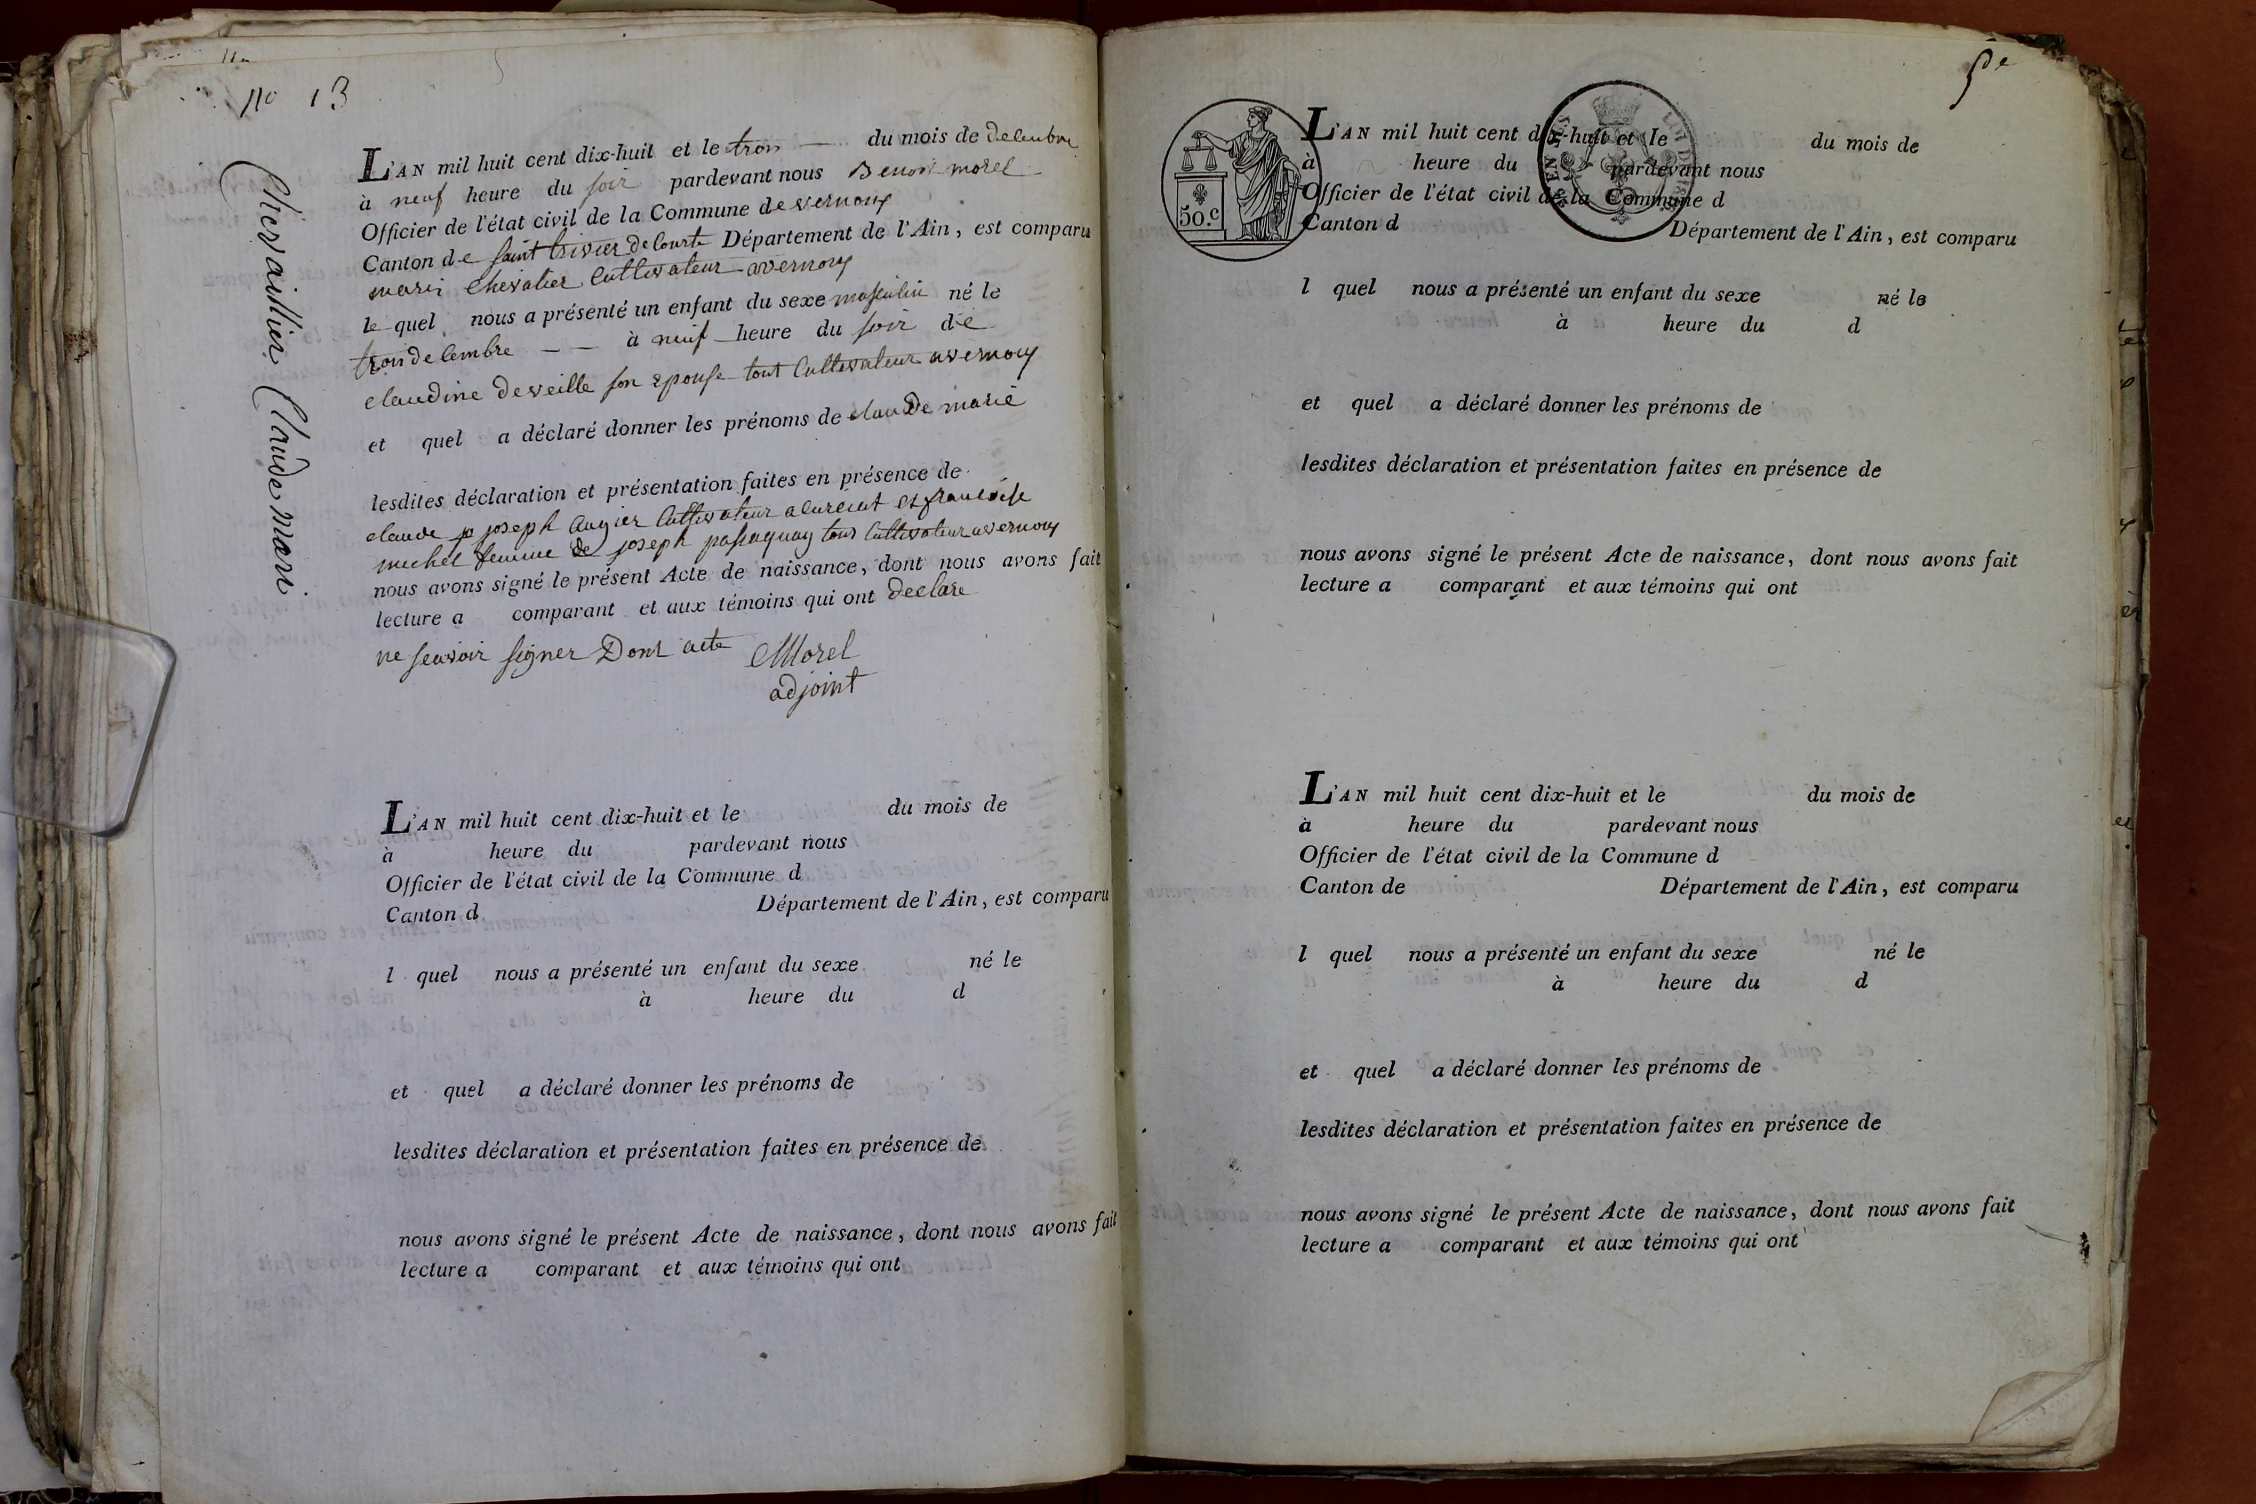 No 13
Chevaillier Claude mari
L'AN mil huit cent dix-huit et le trois — du mois de decembre
à neuf heure du soir pardevant nous Benoit morel
Officier de l'état civil de la Commune de vernoux
Canton de saint trivier de Courte Département de l'Ain, est comparu
marie chevalier Cultivateur avernoux
le quel nous a présenté un enfant du sexe masculin né le
trois decembre — — à neuf heure du soir de
claudine deveille son epouse tout Cultivateur avernoux
et quel a déclaré donner les prénoms de claude marie
lesdites déclaration et présentation faites en présence de
claude joseph augier Cultivateur a curciat et francoise
michel femme de joseph passaquay tous Cultivateur avernoux
nous avons signé le présent Acte de naissance, dont nous avons fait
lecture a comparant et aux témoins qui ont declare
ne scavoir signer Dont acte
Morel
adjoint
L'AN mil huit cent dix-huit et le du mois de
à heure du pardevant nous
Officier de l'état civil de la Commune d
Canton d Département de l'Ain, est comparu
l quel nous a présenté un enfant du sexe né le
à heure du d
et quel a déclaré donner les prénoms de
lesdites déclaration et présentation faites en présence de
nous avons signé le présent Acte de naissance, dont nous avons fait
lecture a comparant et aux témoins qui ont
5de
50.c
L'AN mil huit cent dix-huit et le du mois de
à heure du pardevant nous
Officier de l'état civil de la Commune d
Canton d Département de l'Ain, est comparu
l quel nous a présenté un enfant du sexe né le
à heure du d
et quel a déclaré donner les prénoms de
lesdites déclaration et présentation faites en présence de
nous avons signé le présent Acte de naissance, dont nous avons fait
lecture a comparant et aux témoins qui ont
L'AN mil huit cent dix-huit et le du mois de
à heure du pardevant nous
Officier de l'état civil de la Commune d
Canton de Département de l'Ain, est comparu
l quel nous a présenté un enfant du sexe né le
à heure du d
et quel a déclaré donner les prénoms de
lesdites déclaration et présentation faites en présence de
nous avons signé le présent Acte de naissance, dont nous avons fait
lecture a comparant et aux témoins qui ont